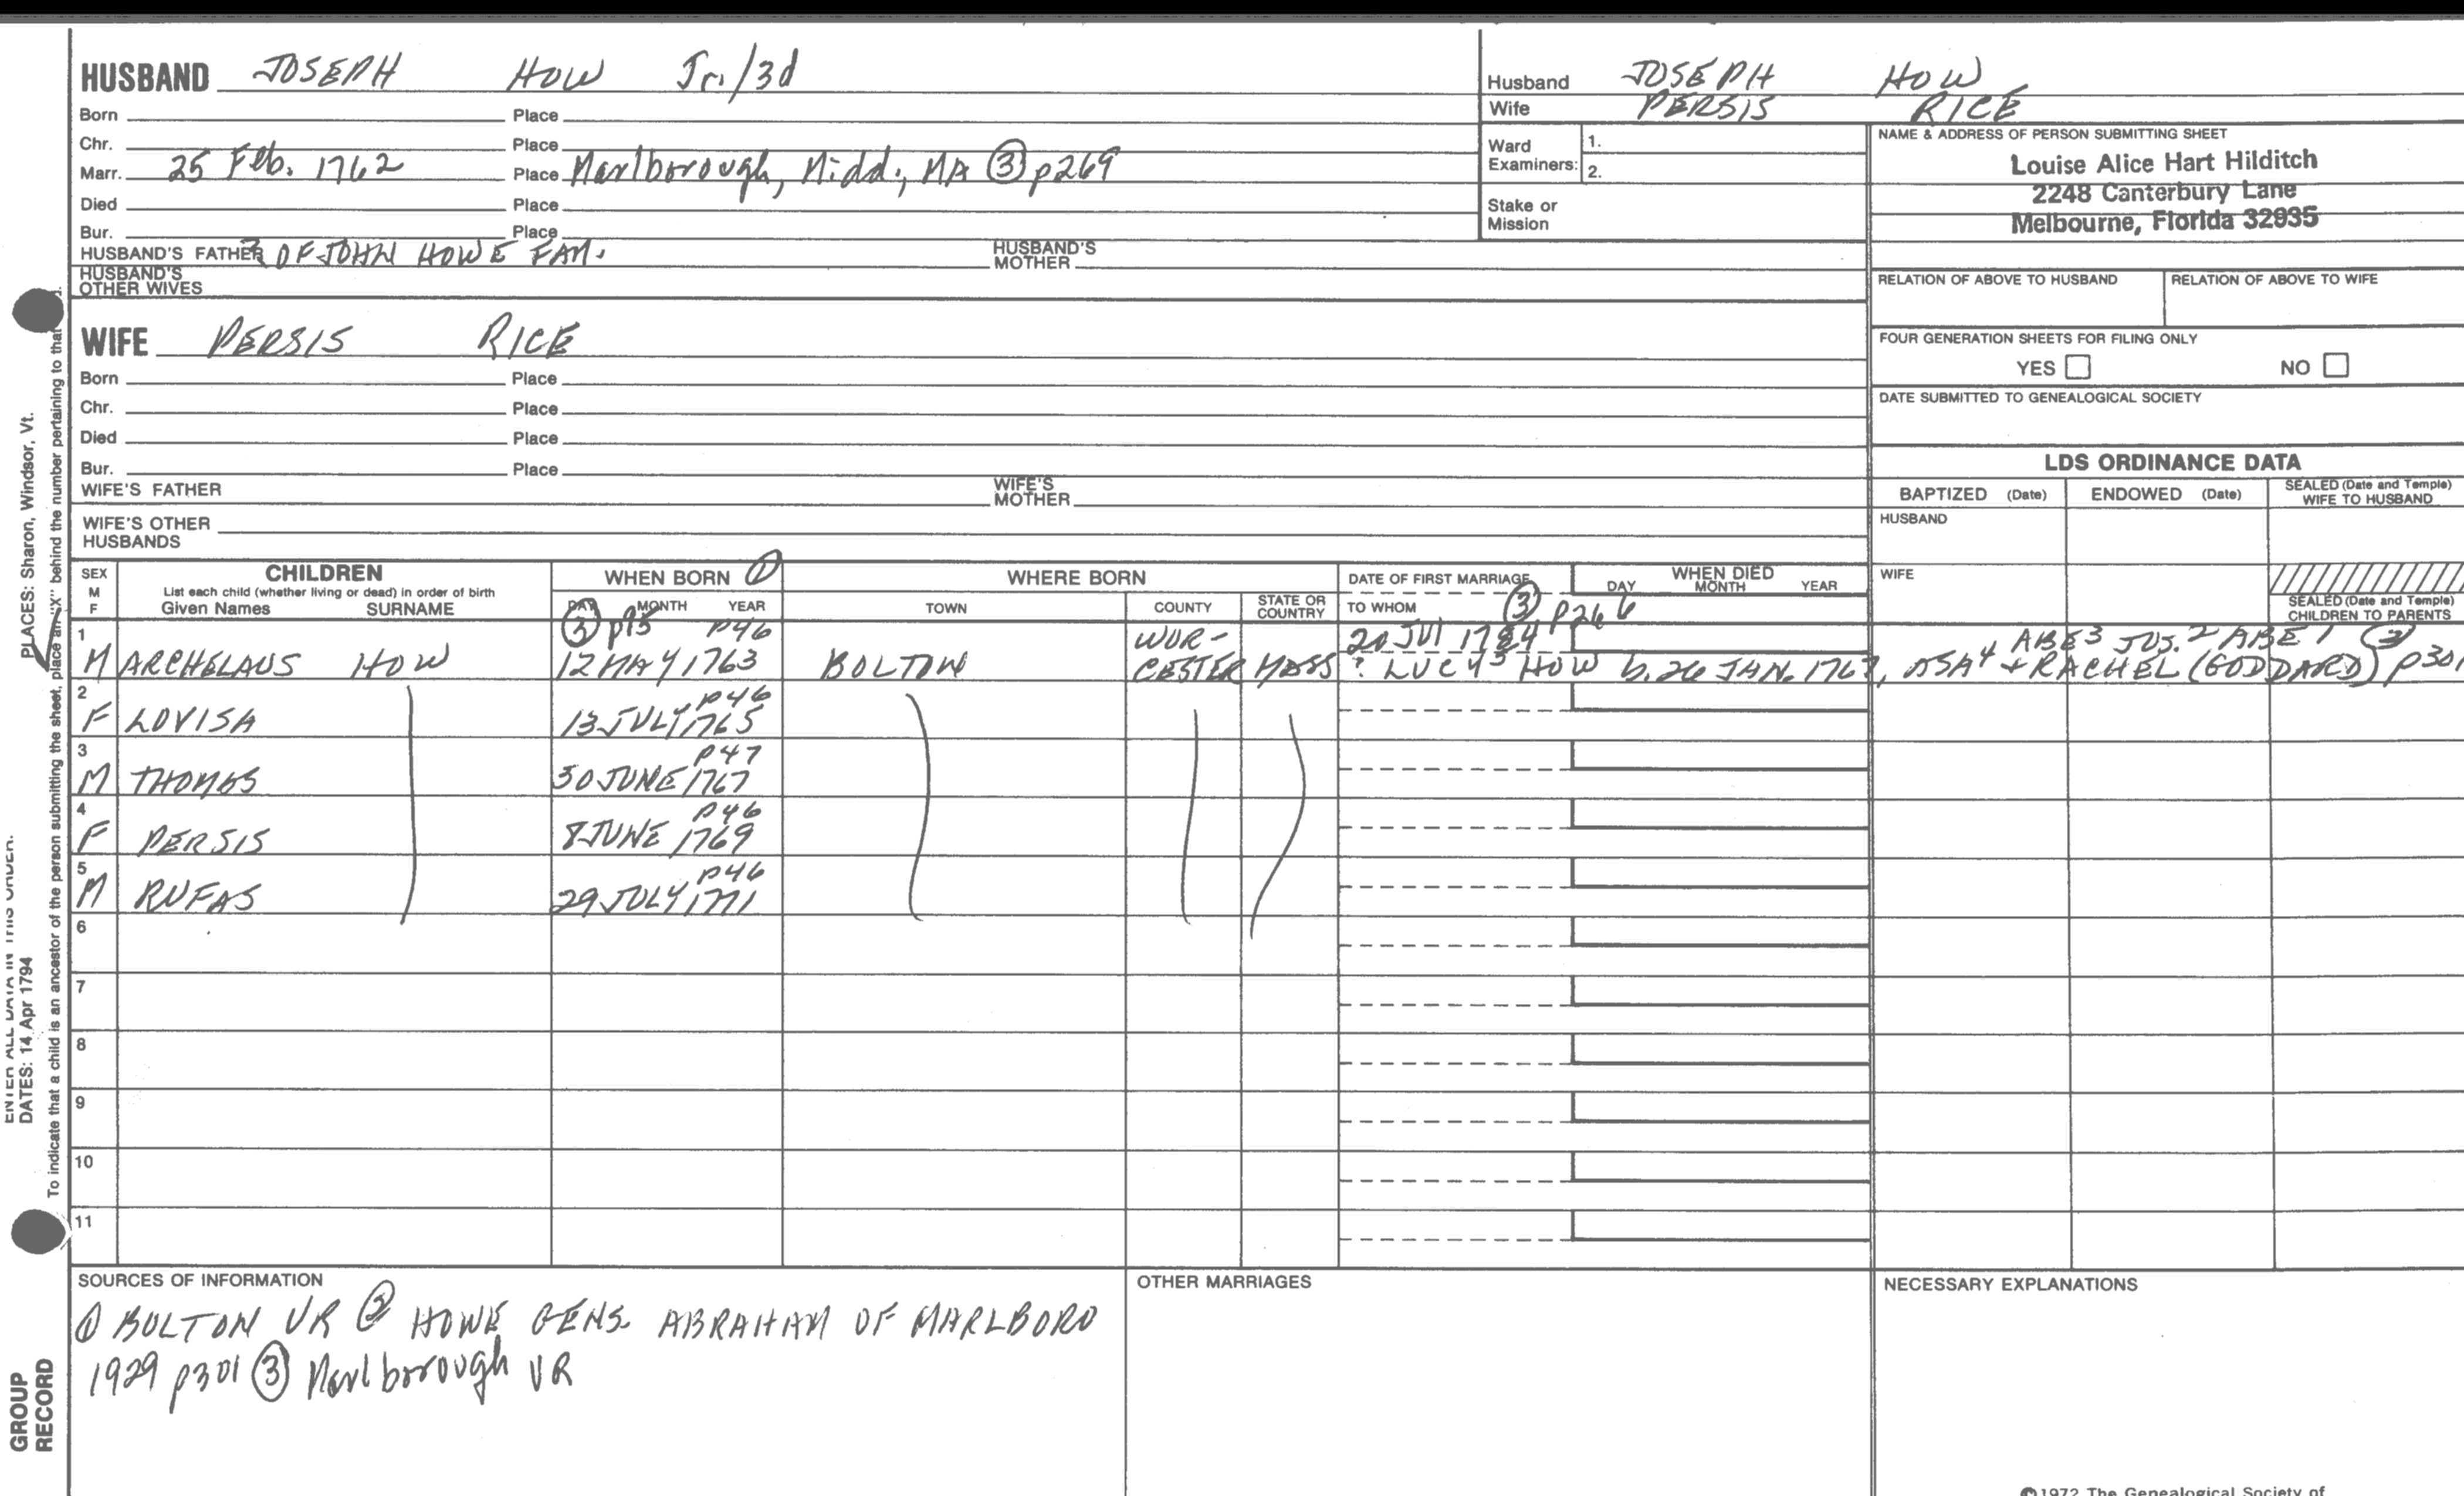 HUSBAND JOSEPH HOW Jr./3d
Born Place
Chr. Place
Marr. 25 Feb. 1762 Place Marlborough, Midd., MA ③ p269
Died Place
Bur. Place
HUSBAND'S FATHER ? OF JOHN HOWE FAM. HUSBAND'S MOTHER
HUSBAND'S OTHER WIVES
WIFE PERSIS RICE
Born Place
Chr. Place
Died Place
Bur. Place
WIFE'S FATHER WIFE'S MOTHER
WIFE'S OTHER HUSBANDS
Husband JOSEPH HOW
Wife PERSIS RICE
Ward Examiners: 1.
2.
Stake or Mission
NAME & ADDRESS OF PERSON SUBMITTING SHEET
Louise Alice Hart Hilditch
2248 Canterbury Lane
Melbourne, Florida 32935
RELATION OF ABOVE TO HUSBAND RELATION OF ABOVE TO WIFE
FOUR GENERATION SHEETS FOR FILING ONLY
YES NO
DATE SUBMITTED TO GENEALOGICAL SOCIETY
LDS ORDINANCE DATA
BAPTIZED (Date) ENDOWED (Date) SEALED (Date and Temple) WIFE TO HUSBAND
HUSBAND
WIFE
SEALED (Date and Temple) CHILDREN TO PARENTS
SEX M F
CHILDREN
List each child (whether living or dead) in order of birth
Given Names SURNAME
WHEN BORN ①
DAY MONTH YEAR
WHERE BORN
TOWN COUNTY STATE OR COUNTRY
DATE OF FIRST MARRIAGE
TO WHOM ③ p266
WHEN DIED
DAY MONTH YEAR
③ p95 p46 WOR- 20 JUL 1784 ABE³ JOS.² ABE¹ ②
1 M ARCHELAUS HOW 12 MAY 1763 BOLTON CESTER MASS ? LUCY⁵ HOW b. 26 JAN. 1767, ASA⁴ + RACHEL (GODDARD) p301
p46
2 F LOVISA 13 JULY 1765
p47
3 M THOMAS 30 JUNE 1767
p46
4 F PERSIS 8 JUNE 1769
p46
5 M RUFAS 29 JULY 1771
6
7
8
9
10
11
SOURCES OF INFORMATION
① BOLTON VR ② HOWE GENS. ABRAHAM OF MARLBORO
1929 p301 ③ Marlborough VR
OTHER MARRIAGES
NECESSARY EXPLANATIONS
©1972 The Genealogical Society of
PLACES: Sharon, Windsor, Vt.
DATES: 14 Apr 1794
To indicate that a child is an ancestor of the person submitting the sheet, place an "X" behind the number pertaining to that
GROUP
RECORD